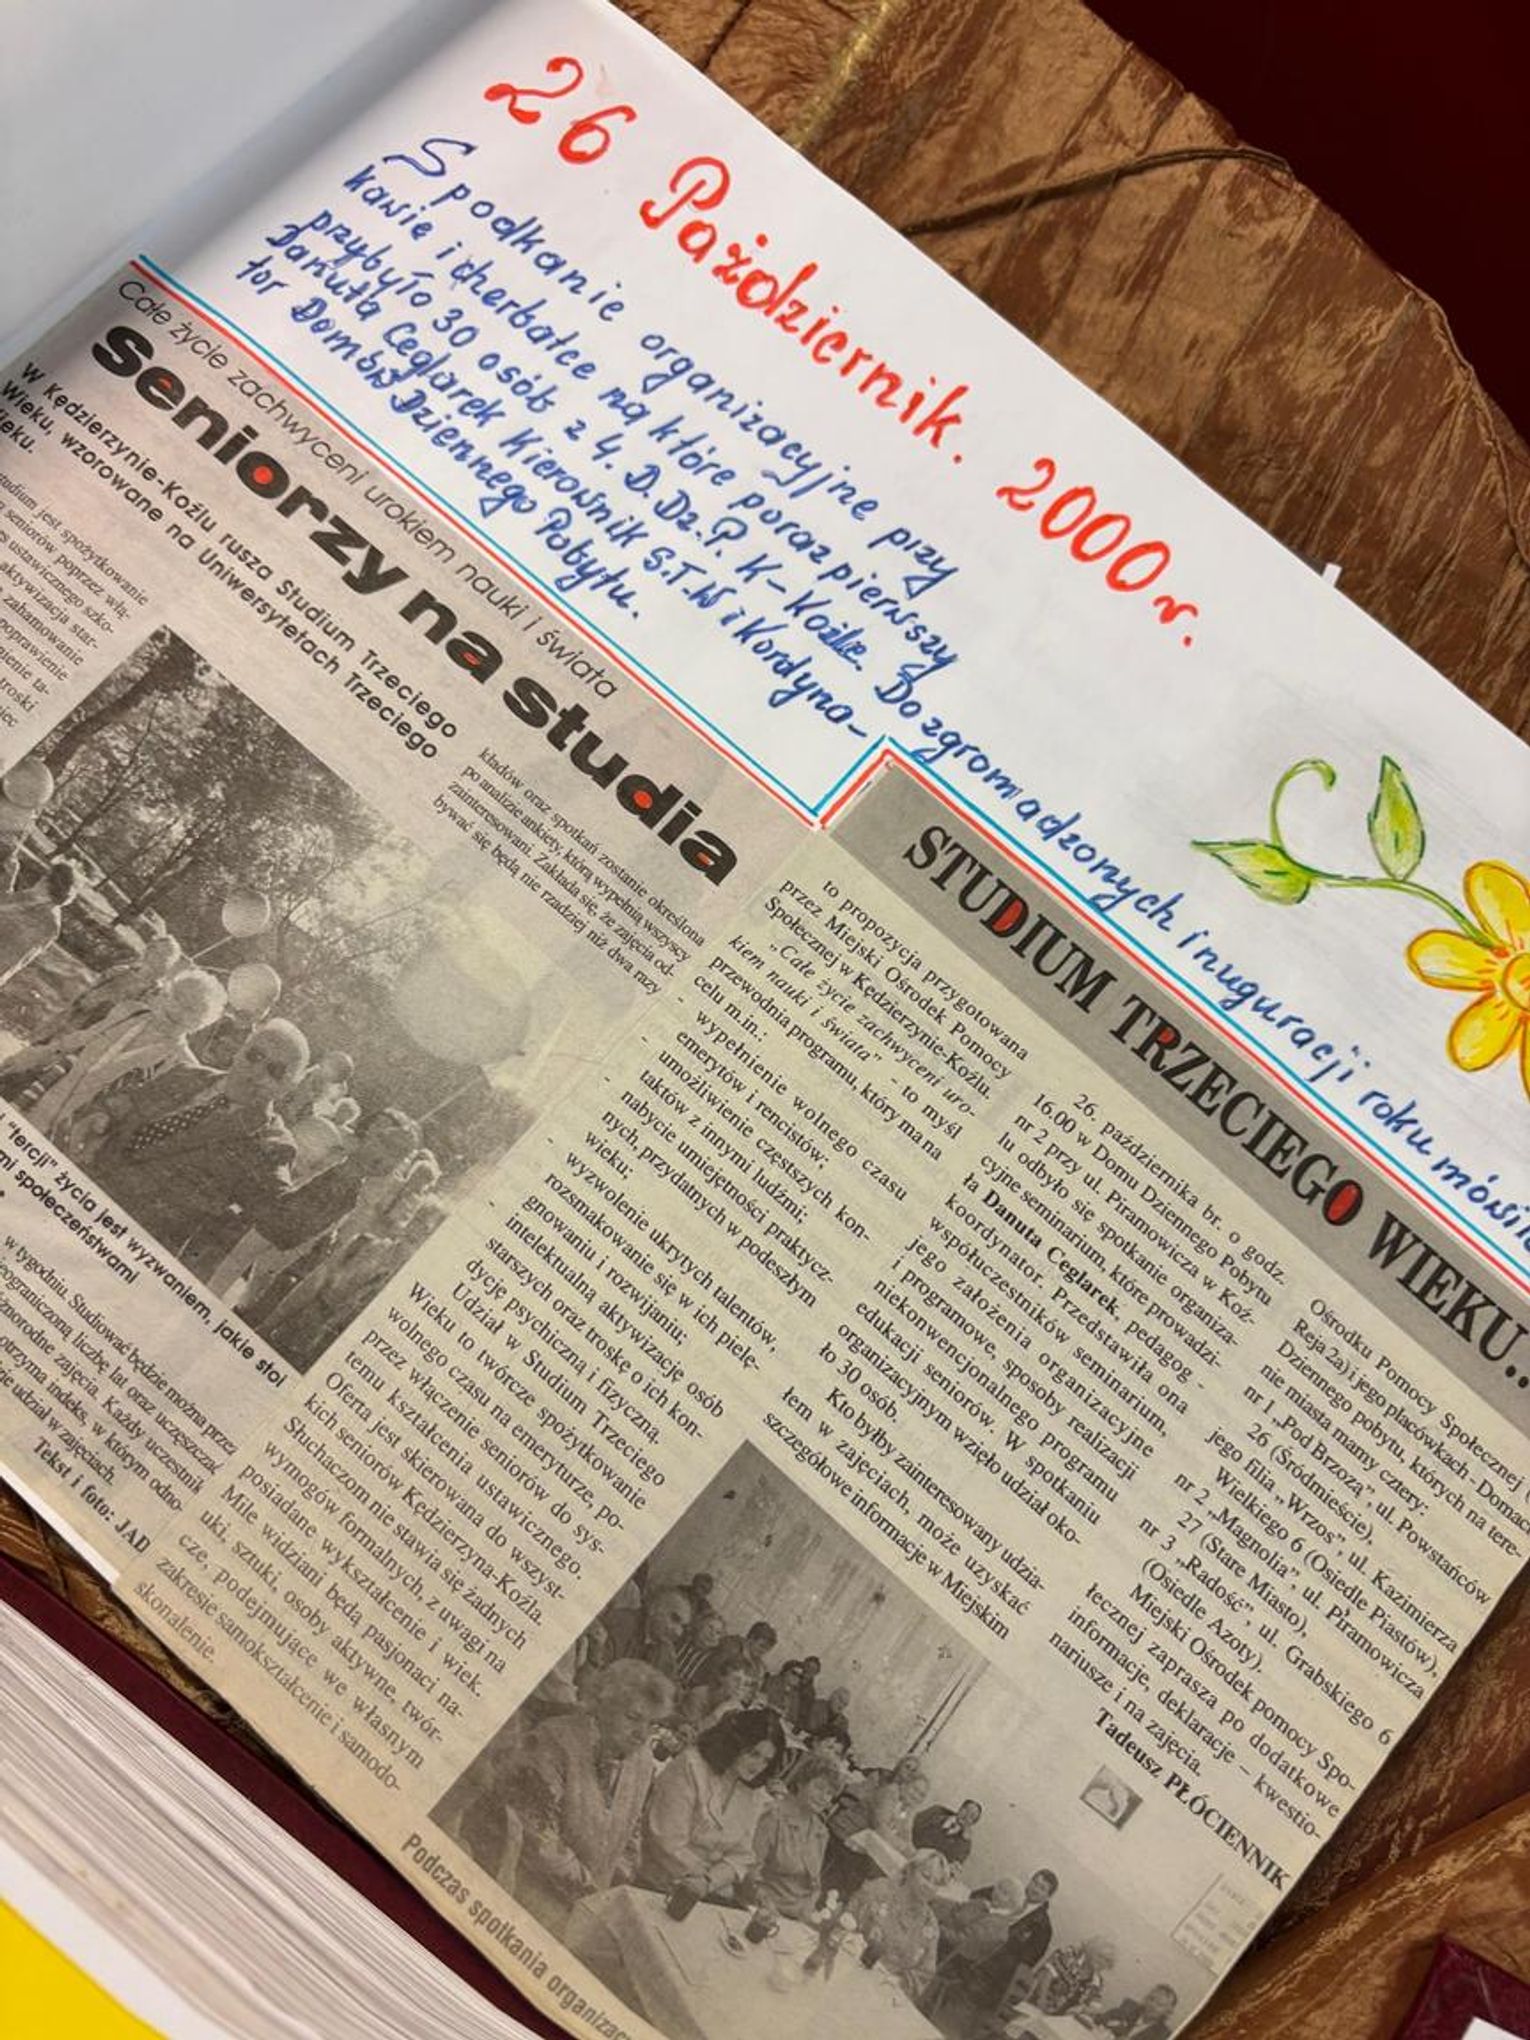 26 Październik. 2000 r.
Spodkanie organizacyjne przy
kawie i cherbatce na które poraz pierwszy
przybyło 30 osób z 4. D.Dz.P. K-Koźle. Do zgromadzonych inuguracji roku mówiła
Danuta Ceglarek Kierownik S.T.W i Kordyna-
tor Domów Dziennego Pobytu.
Całe życie zachwyceni urokiem nauki i świata
Seniorzy na studia
W Kędzierzynie-Koźlu rusza Studium Trzeciego
Wieku, wzorowane na Uniwersytetach Trzeciego
ieku.
studium jest spożytkowanie
seniorów poprzez włą-
ustawicznego szko-
aktywizacja star-
zahamowanie
poprawienie
troski
kładów oraz spotkań zostanie określona
po analizie ankiety, którą wypełnią wszyscy
zainteresowani. Zakłada się, że zajęcia od-
bywać się będą nie rzadziej niż dwa razy
"tercji" życia jest wyzwaniem, jakie stoi
mi społeczeństwami
w tygodniu. Studiować będzie można przez
eograniczoną liczbę lat oraz uczęszczać
żnorodne zajęcia. Każdy uczestnik
otrzyma indeks, w którym odno-
udział w zajęciach.
Tekst i foto: JAD
STUDIUM TRZECIEGO WIEKU...
to propozycja przygotowana
przez Miejski Ośrodek Pomocy
Społecznej w Kędzierzynie-Koźlu.
„Całe życie zachwyceni uro-
kiem nauki i świata" - to myśl
przewodnia programu, który ma na
celu m.in.:
- wypełnienie wolnego czasu
emerytów i rencistów;
- umożliwienie częstszych kon-
taktów z innymi ludźmi;
- nabycie umiejętności praktycz-
nych, przydatnych w podeszłym
wieku;
- wyzwolenie ukrytych talentów,
rozsmakowanie się w ich pielę-
gnowaniu i rozwijaniu;
- intelektualną aktywizację osób
starszych oraz troskę o ich kon-
dycję psychiczną i fizyczną.
Udział w Studium Trzeciego
Wieku to twórcze spożytkowanie
wolnego czasu na emeryturze, po-
przez włączenie seniorów do sys-
temu kształcenia ustawicznego.
Oferta jest skierowana do wszyst-
kich seniorów Kędzierzyna-Koźla.
Słuchaczom nie stawia się żadnych
wymogów formalnych, z uwagi na
posiadane wykształcenie i wiek.
Mile widziani będą pasjonaci na-
uki, sztuki, osoby aktywne, twór-
cze, podejmujące we własnym
zakresie samokształcenie i samodo-
skonalenie.
26. października br. o godz.
16.00 w Domu Dziennego Pobytu
nr 2 przy ul. Piramowicza w Koź-
lu odbyło się spotkanie organiza-
cyjne seminarium, które prowadzi-
ła Danuta Ceglarek, pedagog -
koordynator. Przedstawiła ona
współuczestników seminarium,
jego założenia organizacyjne
i programowe, sposoby realizacji
niekonwencjonalnego programu
edukacji seniorów. W spotkaniu
organizacyjnym wzięło udział oko-
ło 30 osób.
Kto byłby zainteresowany udzia-
łem w zajęciach, może uzyskać
szczegółowe informacje w Miejskim
Ośrodku Pomocy Społecznej
Reja 2a) i jego placówkach - Domach
Dziennego pobytu, których na tere-
nie miasta mamy cztery:
nr 1 „Pod Brzozą", ul. Powstańców
26 (Śródmieście),
jego filia „Wrzos", ul. Kazimierza
Wielkiego 6 (Osiedle Piastów),
nr 2 „Magnolia", ul. Piramowicza
27 (Stare Miasto),
nr 3 „Radość", ul. Grabskiego 6
(Osiedle Azoty).
Miejski Ośrodek pomocy Spo-
łecznej zaprasza po dodatkowe
informacje, deklaracje – kwestio-
nariusze i na zajęcia.
Tadeusz PŁÓCIENNIK
Podczas spotkania organizac